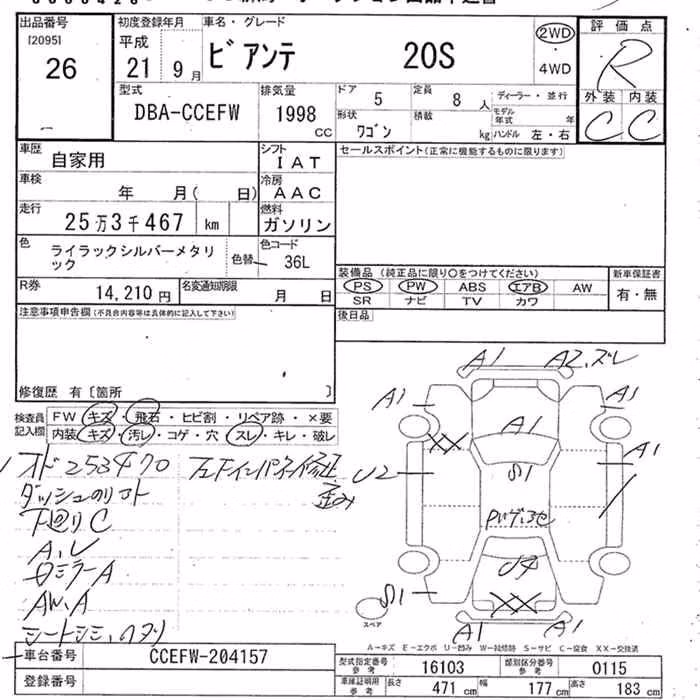 出品番号
[2095]
26
初度登録年月
平成
21 9月
車名・グレード
ビアンテ 20S
2WD
4WD
評価点
R
外装 内装
C C
型式
DBA-CCEFW
排気量
1998 CC
ドア
5
定員
8人
ディーラー・並行
形状
ワゴン
積載
kg
モデル年式 年
ハンドル 左・右
車歴
自家用
シフト
IAT
セールスポイント(正常に機能するものに限ります)
車検
年 月( 日)
冷房
AAC
走行
25万3千467 km
燃料
ガソリン
色
ライラックシルバーメタリック
色替
色コード
36L
R券
14,210円
名変通知期限
月 日
装備品 (純正品に限り〇をつけてください)
PS PW ABS エアB AW
SR ナビ TV カワ
新車保証書
有・無
注意事項申告欄(不具合内容等は具体的に記入して下さい)
後日品
修復歴 有〔箇所 〕
検査員記入欄
FW キズ・飛石・ヒビ割・リペア跡・×要
内装 キズ・汚レ・コゲ・穴・スレ・キレ・破レ
オド253470
ダッシュのリフト
下回りC
A、U
ロミラーA
AW、A
シートシミ、
歪み
A1 A2、ズレ
A1 A1
A1
XX
S1
A1
U2
U4
S1
XX
A1 A1
スペア
A-キズ E-エクボ U-凹み W-補修跡 S-サビ C-腐食 XX-交換済
車台番号
CCEFW-204157
登録番号
型式指定番号 参考
16103
類別区分番号 参考
0115
車庫証明用 参考
長さ 471 cm
幅 177 cm
高さ 183 cm